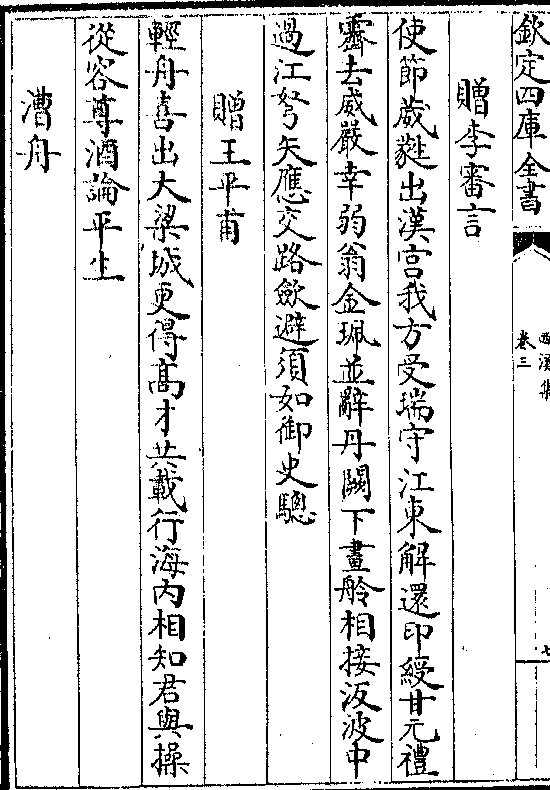 欽定四庫全書
西溪集
卷三
七
贈李審言
使節葳蕤出漢宮我方受瑞守江東解還印綬甘元禮
霽去威嚴幸弱翁金珮並辭丹闕下畫舲相接汳波中
過江弩矢應交路斂避須如御史驄
贈王平甫
輕舟喜出大梁城更得髙才共載行海内相知君與操
從容尊酒論平生
漕舟